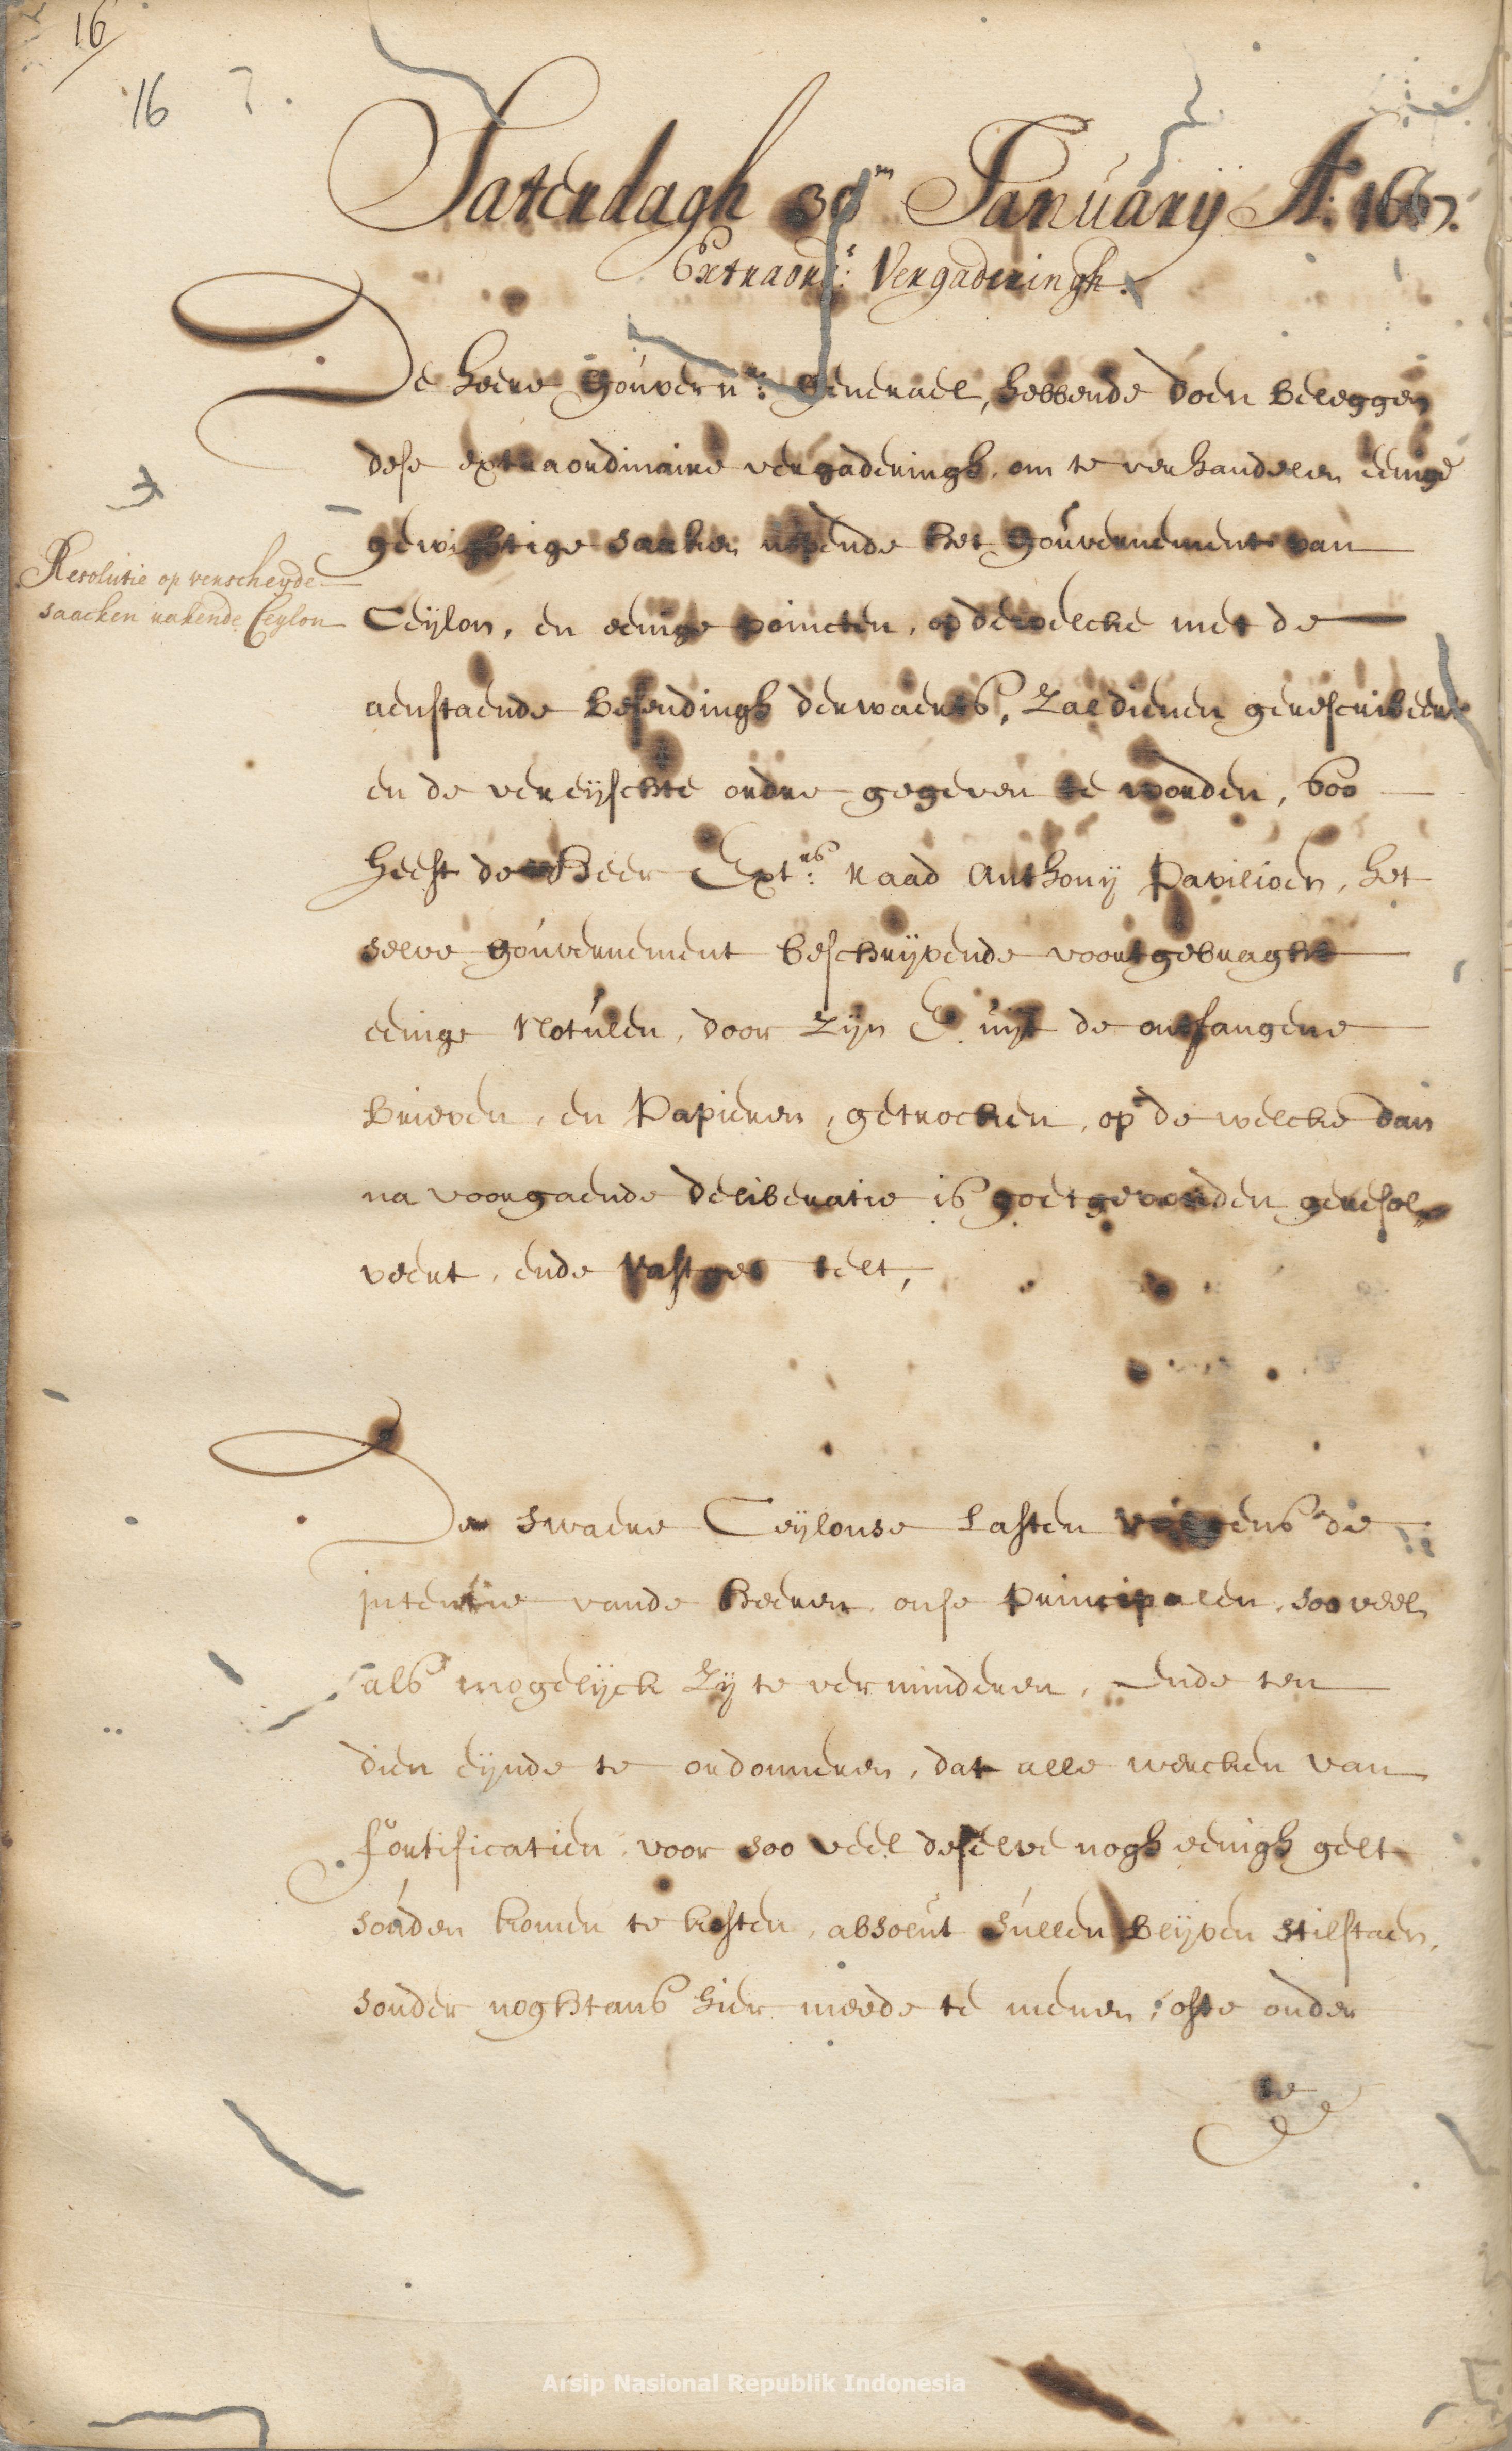 16
16
Saterdagh 30en Januarij Ao. 1667.
Extraords: Vergaderingh.
De heere Gouvernr: Generael, hebbende doen beleggen
dese extraordinaire vergaderingh, om te verhandelen eenige
gewichtige saaken nopende het Gouvernement van
Resolutie op verscheyde
saacken rakende Ceylon
Ceijlon, en eenige poincten, op dewelcke met de
aenstaende besendingh derwaerts, zal dienen gerescribeert
en de vereijschte ordre gegeven te worden, soo
heeft de Heer Extrs: raad Anthonij Pavilioen, het
selve gouvernement beschrijvende voortgebraght
eenige Notulen, door zijn E. uijt de ontfangene
brieven, en Papieren, getrocken, op de welcke dan
na voorgaende deliberatie is goetgevonden geresol„
veert, ende vastgestelt,
De swaere Ceijlonse lasten volgens de
intentie vande heeren onse principalen, soo veel
als mogelijck zij te verminderen, ende ten
dien eijnde te ordonneren, dat alle wercken van
fortificatien voor soo veel deselve nogh eenigh gelt
souden komen te kosten, absolut sullen blijven stilstaen,
sonder noghtans hier meede te menen, ofte onder
te
Arsip Nasional Republik Indonesia